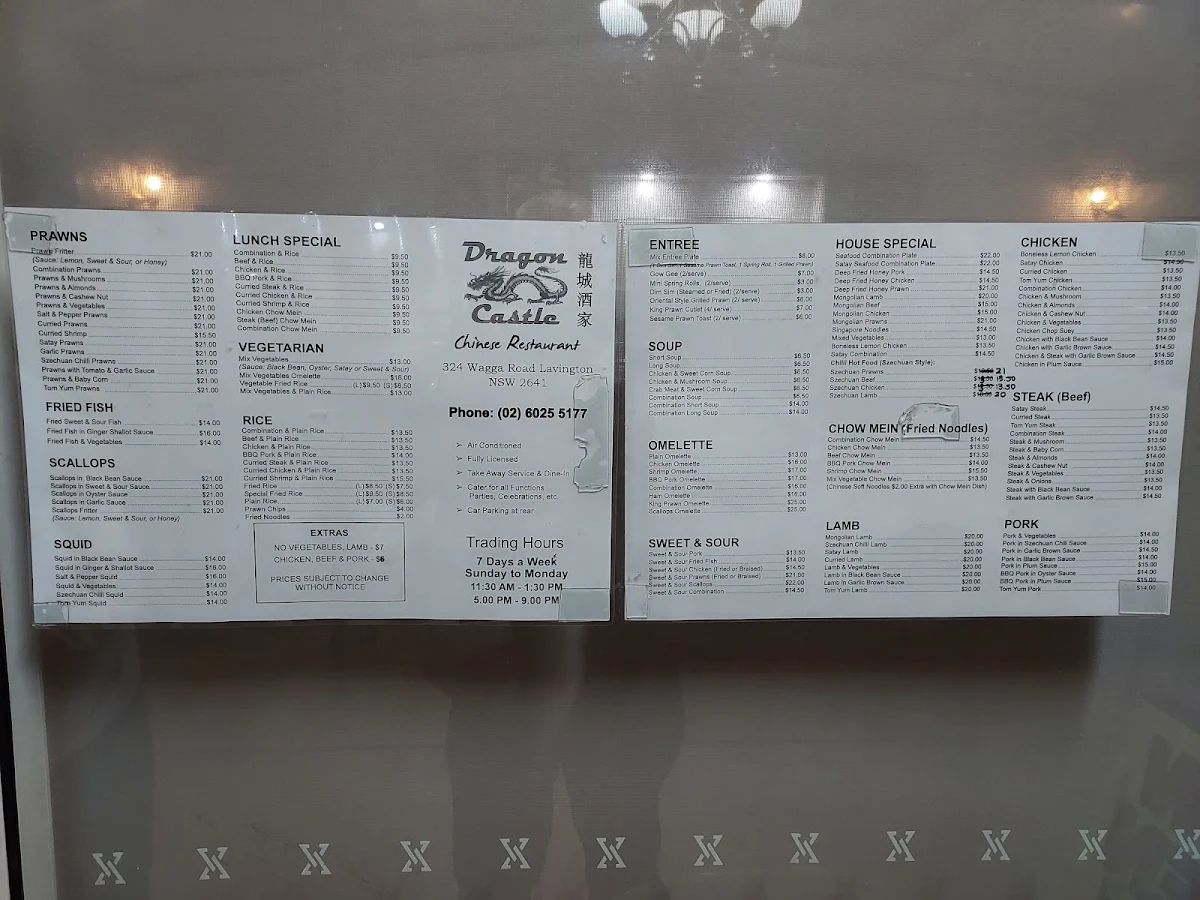 PRAWNS
Prawn Fritter $21.00
(Sauce: Lemon, Sweet & Sour, or Honey)
Combination Prawns $21.00
Prawns & Mushrooms $21.00
Prawns & Almonds $21.00
Prawns & Cashew Nut $21.00
Prawns & Vegetables $21.00
Salt & Pepper Prawns $21.00
Curried Prawns $21.00
Curried Shrimp $15.50
Satay Prawns $21.00
Garlic Prawns $21.00
Szechuan Chilli Prawns $21.00
Prawns with Tomato & Garlic Sauce $21.00
Prawns & Baby Corn $21.00
Tom Yum Prawns $21.00
FRIED FISH
Fried Sweet & Sour Fish $14.00
Fried Fish in Ginger Shallot Sauce $16.00
Fried Fish & Vegetables $14.00
SCALLOPS
Scallops in Black Bean Sauce $21.00
Scallops in Sweet & Sour Sauce $21.00
Scallops in Oyster Sauce $21.00
Scallops in Garlic Sauce $21.00
Scallops Fritter $21.00
(Sauce: Lemon, Sweet & Sour, or Honey)
SQUID
Squid in Black Bean Sauce $14.00
Squid in Ginger & Shallot Sauce $16.00
Salt & Pepper Squid $16.00
Squid & Vegetables $14.00
Szechuan Chilli Squid $14.00
Tom Yum Squid $14.00
LUNCH SPECIAL
Combination & Rice $9.50
Beef & Rice $9.50
Chicken & Rice $9.50
BBQ Pork & Rice $9.50
Curried Steak & Rice $9.50
Curried Chicken & Rice $9.50
Curried Shrimp & Rice $9.50
Chicken Chow Mein $9.50
Steak (Beef) Chow Mein $9.50
Combination Chow Mein $9.50
VEGETARIAN
Mix Vegetables $13.00
(Sauce: Black Bean, Oyster, Satay or Sweet & Sour)
Mix Vegetables Omelette $16.00
Vegetable Fried Rice (L)$9.50 (S)$8.50
Mix Vegetables & Plain Rice $13.00
RICE
Combination & Plain Rice $13.50
Beef & Plain Rice $13.50
Chicken & Plain Rice $13.50
BBQ Pork & Plain Rice $14.00
Curried Steak & Plain Rice $13.50
Curried Chicken & Plain Rice $13.50
Curried Shrimp & Plain Rice $15.50
Fried Rice (L)$8.50 (S)$7.50
Special Fried Rice (L)$9.50 (S)$8.50
Plain Rice (L)$7.00 (S)$6.00
Prawn Chips $4.00
Fried Noodles $2.00
EXTRAS
NO VEGETABLES, LAMB - $7
CHICKEN, BEEF & PORK - $6
PRICES SUBJECT TO CHANGE
WITHOUT NOTICE
Dragon
Castle
龍城酒家
Chinese Restaurant
324 Wagga Road Lavington
NSW 2641
Phone: (02) 6025 5177
➢ Air Conditioned
➢ Fully Licensed
➢ Take Away Service & Dine-In
➢ Cater for all Functions
Parties, Celebrations, etc.
➢ Car Parking at rear
Trading Hours
7 Days a Week
Sunday to Monday
11:30 AM - 1:30 PM
5.00 PM - 9.00 PM
ENTREE
Mix Entree Plate $8.00
Prawn Toast, 1 Spring Roll, 1 Grilled Prawn)
Gow Gee (2/serve) $7.00
Mini Spring Rolls, (2/serve) $3.00
Dim Sim (Steamed or Fried) (2/serve) $3.00
Oriental Style Grilled Prawn (2/ serve) $6.00
King Prawn Cutlet (4/ serve) $7.00
Sesame Prawn Toast (2/ serve) $6.00
SOUP
Short Soup $6.50
Long Soup $6.50
Chicken & Sweet Corn Soup $6.50
Chicken & Mushroom Soup $6.50
Crab Meat & Sweet Corn Soup $6.50
Combination Soup $6.50
Combination Short Soup $14.00
Combination Long Soup $14.00
OMELETTE
Plain Omelette $13.00
Chicken Omelette $16.00
Shrimp Omelette $17.00
BBQ Pork Omelette $17.00
Combination Omelette $16.00
Ham Omelette $16.00
King Prawn Omelette $25.00
Scallops Omelette $25.00
SWEET & SOUR
Sweet & Sour Pork $13.50
Sweet & Sour Fried Fish $14.00
Sweet & Sour Chicken (Fried or Braised) $14.50
Sweet & Sour Prawns (Fried or Braised) $21.00
Sweet & Sour Scallops $22.00
Sweet & Sour Combination $14.50
HOUSE SPECIAL
Seafood Combination Plate $22.00
Satay Seafood Combination Plate $22.00
Deep Fried Honey Pork $14.50
Deep Fried Honey Chicken $14.50
Deep Fried Honey Prawn $21.00
Mongolian Lamb $20.00
Mongolian Beef $15.00
Mongolian Chicken $15.00
Mongolian Prawns $21.00
Singapore Noodles $14.50
Mixed Vegetables $13.00
Boneless Lemon Chicken $13.50
Satay Combination $14.50
Chilli Hot Food (Szechuan Style):
Szechuan Prawns 21
Szechuan Beef 13.50
Szechuan Chicken 13.50
Szechuan Lamb 20
CHOW MEIN (Fried Noodles)
Combination Chow Mein $14.50
Chicken Chow Mein $13.50
Beef Chow Mein $13.50
BBQ Pork Chow Mein $14.00
Shrimp Chow Mein $15.50
Mix Vegetable Chow Mein $13.50
(Chinese Soft Noodles $2.00 Extra with Chow Mein Dish)
LAMB
Mongolian Lamb $20.00
Szechuan Chilli Lamb $20.00
Satay Lamb $20.00
Curried Lamb $20.00
Lamb & Vegetables $20.00
Lamb in Black Bean Sauce $20.00
Lamb in Garlic Brown Sauce $20.00
Tom Yum Lamb $20.00
CHICKEN
Boneless Lemon Chicken $13.50
Satay Chicken $14.50
Curried Chicken $13.50
Tom Yum Chicken $13.50
Combination Chicken $14.00
Chicken & Mushroom $13.50
Chicken & Almonds $14.00
Chicken & Cashew Nut $14.00
Chicken & Vegetables $13.50
Chicken Chop Suey $13.50
Chicken with Black Bean Sauce $14.00
Chicken with Garlic Brown Sauce $14.50
Chicken & Steak with Garlic Brown Sauce $14.50
Chicken in Plum Sauce $15.00
STEAK (Beef)
Satay Steak $14.50
Curried Steak $13.50
Tom Yum Steak $13.50
Combination Steak $14.00
Steak & Mushroom $13.50
Steak & Baby Corn $13.50
Steak & Almonds $14.00
Steak & Cashew Nut $14.00
Steak & Vegetables $13.50
Steak & Onions $13.50
Steak with Black Bean Sauce $14.00
Steak with Garlic Brown Sauce $14.50
PORK
Pork & Vegetables $14.00
Pork in Szechuan Chilli Sauce $14.00
Pork in Garlic Brown Sauce $14.50
Pork in Black Bean Sauce $14.00
Pork in Plum Sauce $15.00
BBQ Pork in Oyster Sauce $14.00
BBQ Pork in Plum Sauce $15.00
Tom Yum Pork $14.00